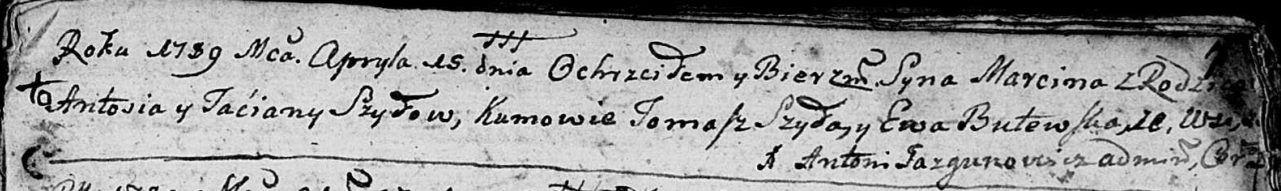 Roku 1789 Mca. Apryla 15. dnia Ochrzciłem y Bierzm. Syna Marcina z Rodzicow
Antosia y Taćiany Szydłow, Kumowie Tomasz Szyda, y Ewa Butewska,
X Antoni Jazgunowicz admin,